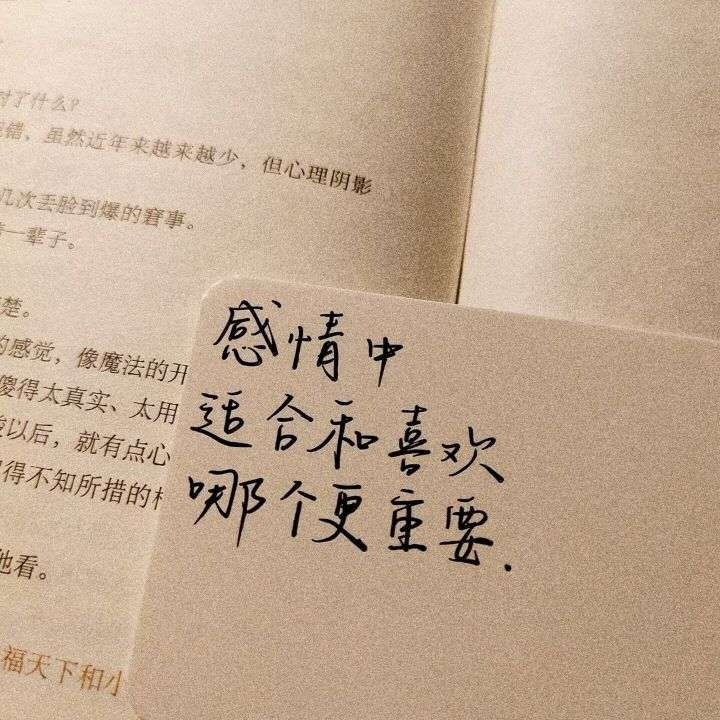 了什么?
错,虽然近年来越来越少,但心理阴影
几次丢脸到爆的窘事。
一辈子。
楚。
的感觉,像魔法的开
傻得太真实、太用
以后,就有点心
得不知所措的
他看。
福天下和小
感情中
适合和喜欢
哪个更重要.